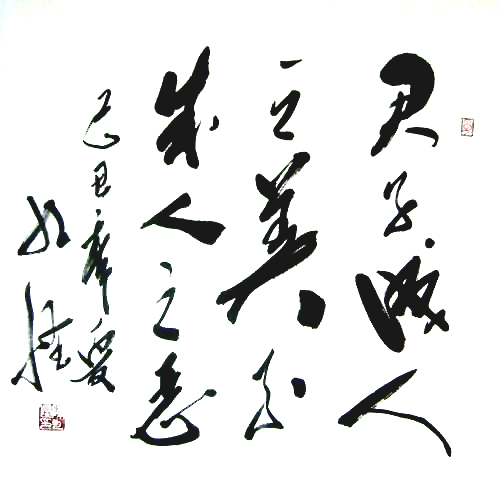 君子成人
之美不
成人之恶
己丑年夏